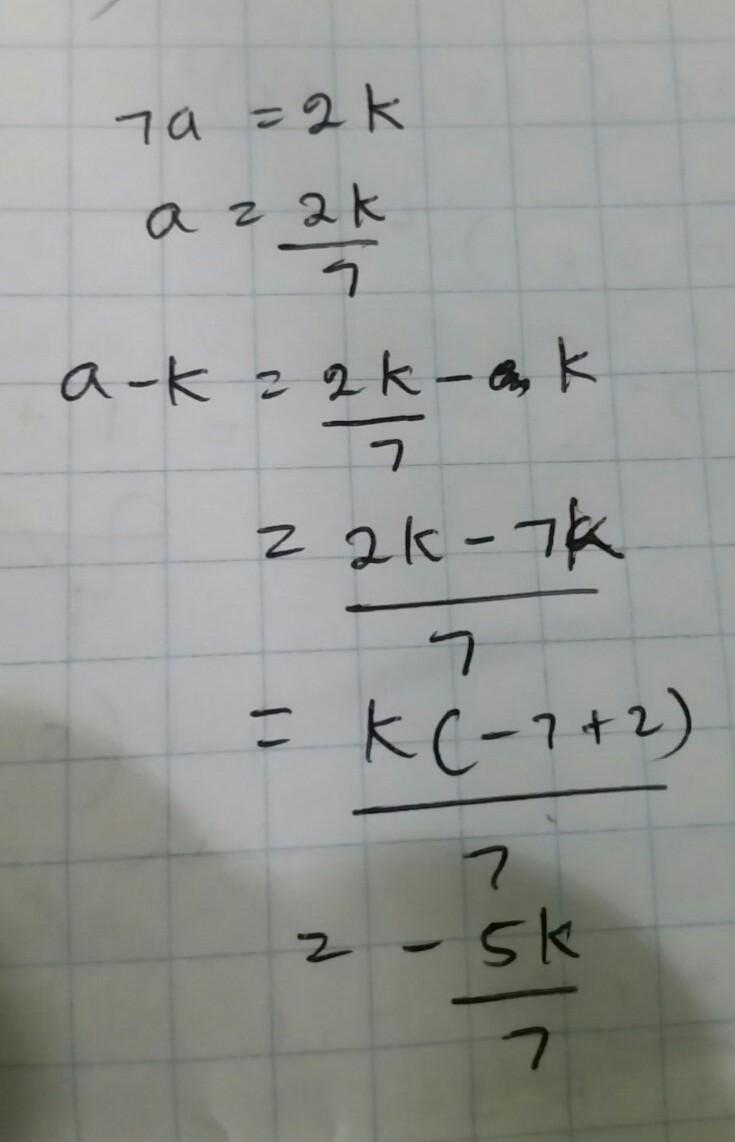 7a = 2k
a = 2k/7
a - k = 2k/7 - k
= (2k - 7k)/7
= k(-7+2)/7
= - 5k/7